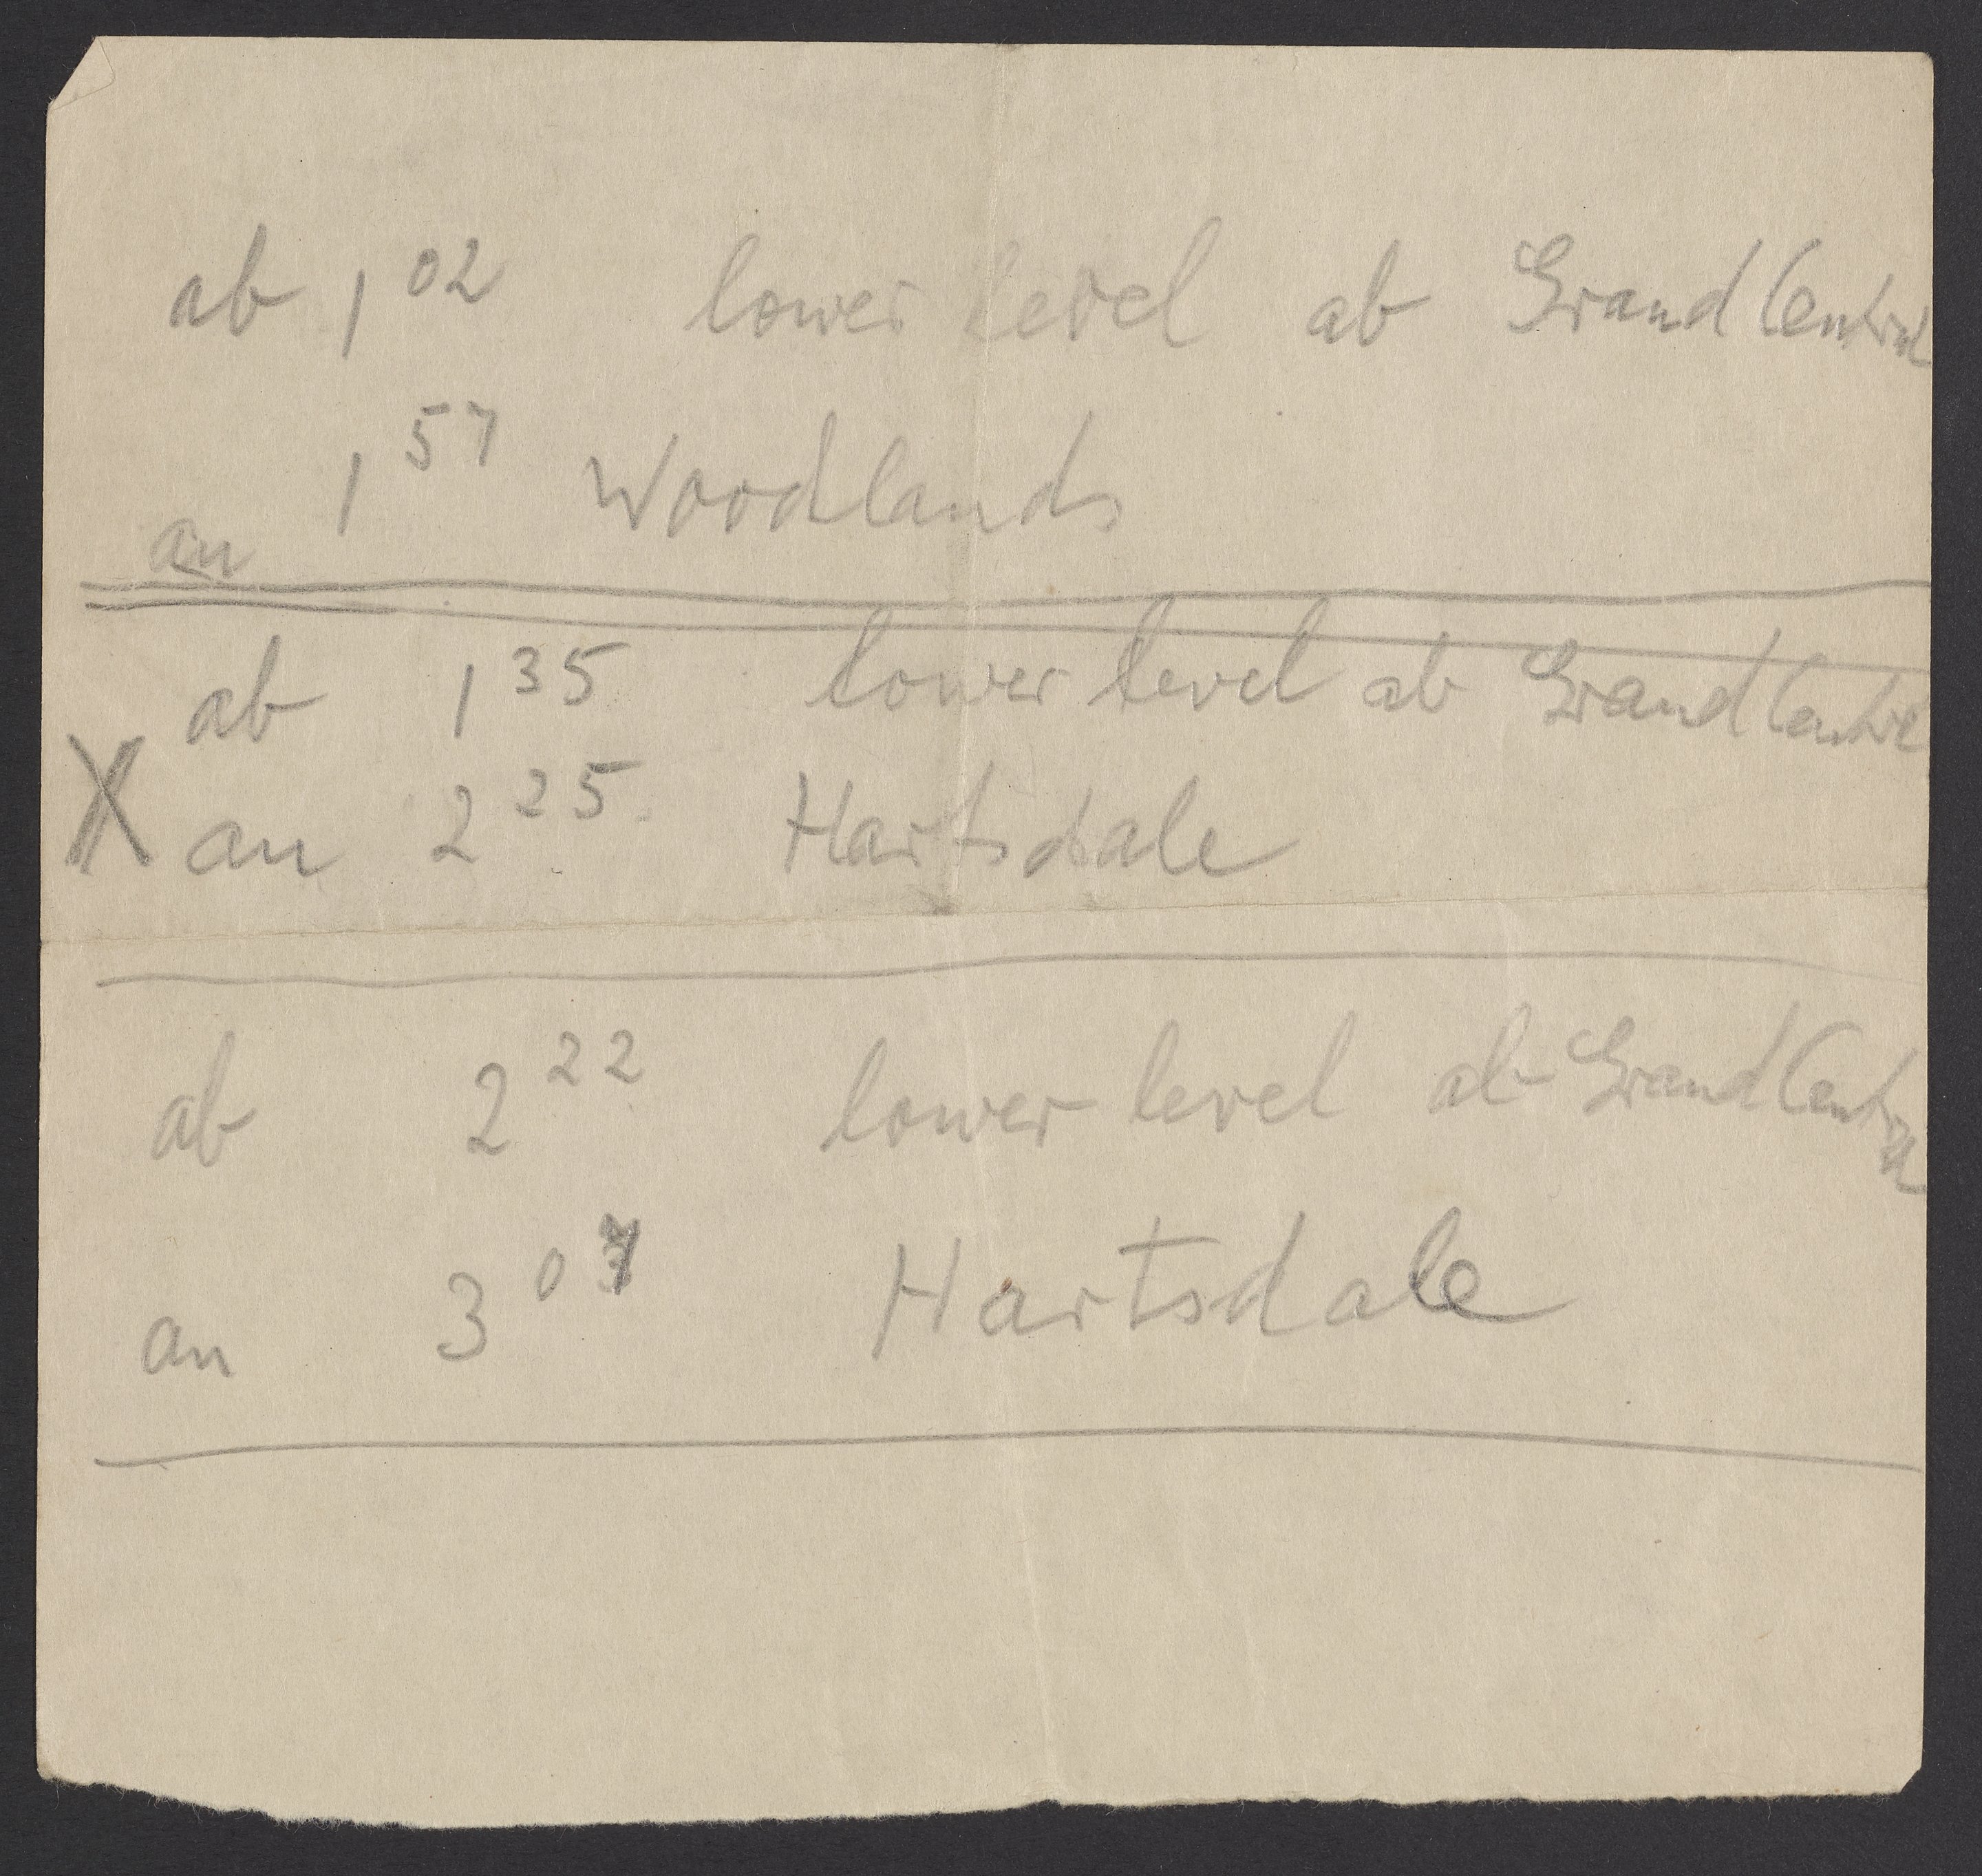 ab 1 02 lower level ab Grand Central
an 1 57 Woodlands
ab 1 35 lower level ab Grand Central
X an 2 25 Hartsdale
ab 2 22 lower level ab Grand Central
an 3 07 Hartsdale